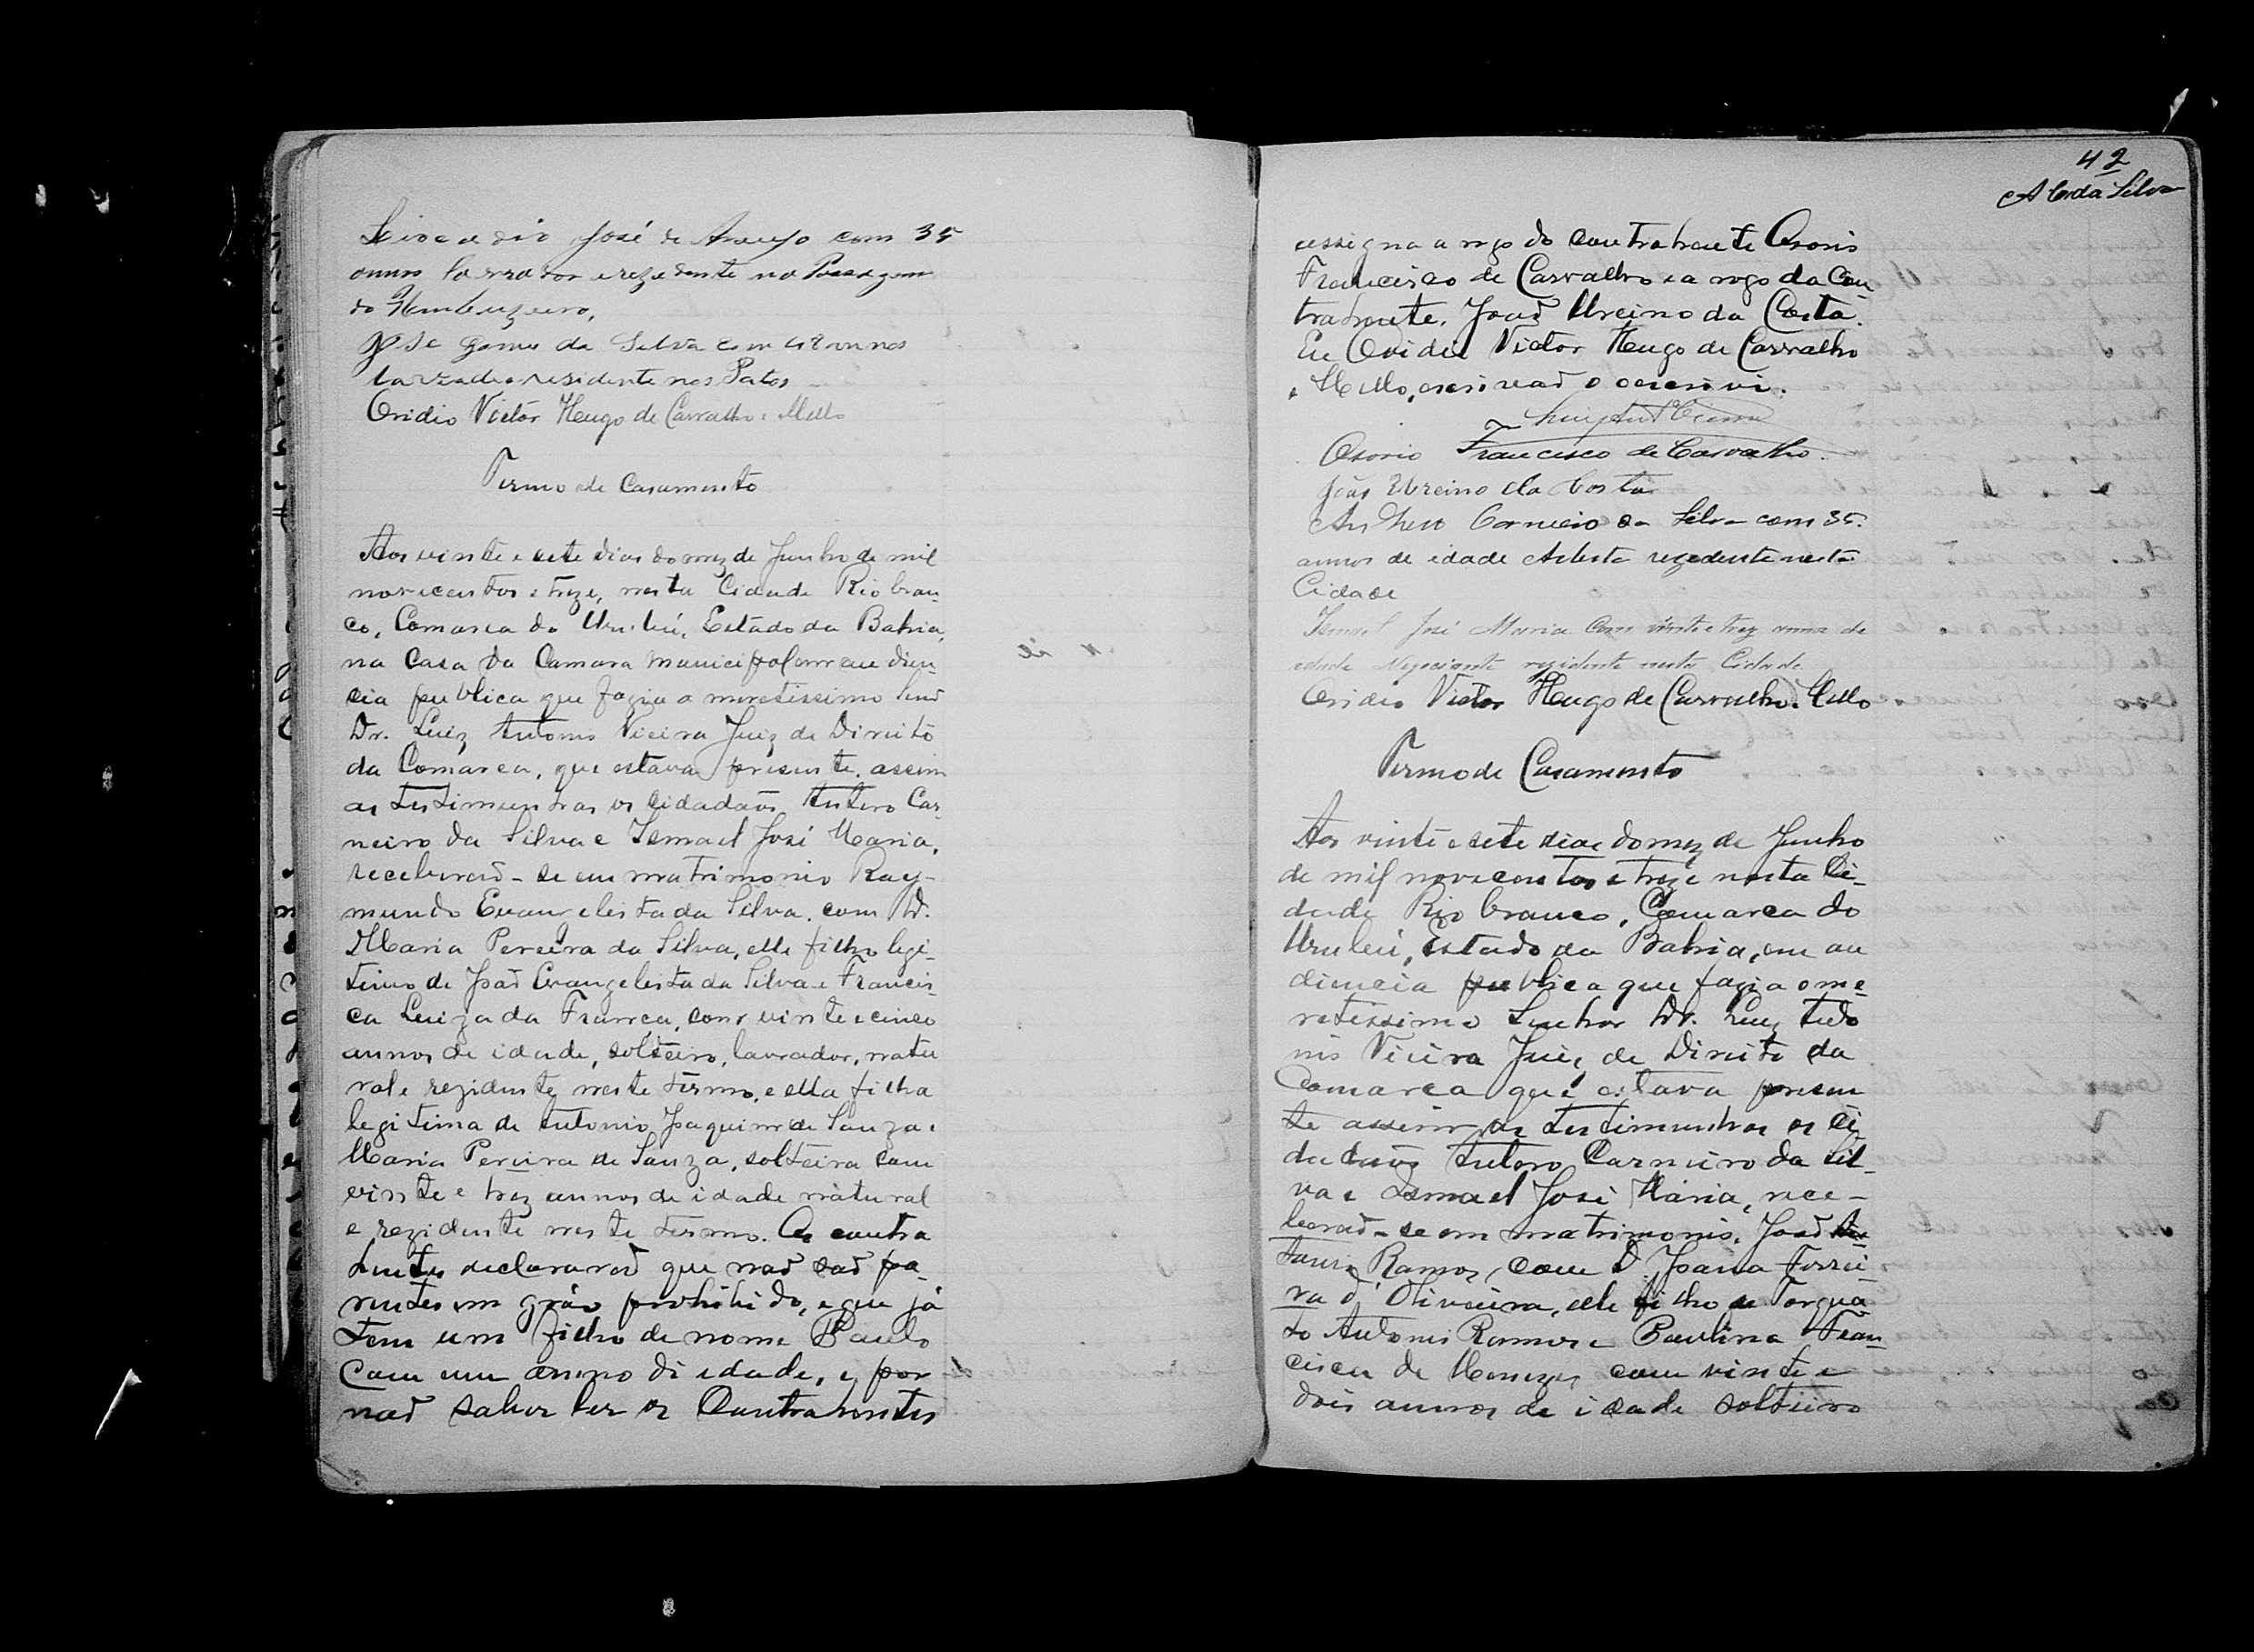 José de Araujo com 35
annos lavrador e rezedente na Passagem
do
José Gomes da Silva com 48 annos
lavrador residente nos Patos
Ovidio Victor Hugo de Carvalho e Mello
Termo de Casamento
Aos vinte e sete dias do mez de Junho de mil
novecentos e treze, nesta Cidade Rio bran-
co, Comarca do Urubú, Estado da Bahia,
na Casa da Camara Municipal em audien
cia publica que fazia o meretissimo Snr
Dr. Luiz Antonio Vieira Juiz de Direito
da Comarca, que estava presente, assim
as testimunhas os cidadaõs Antero Car
neiro da Silva e Ismael José Maria,
receberaõ-se em matrimonio Ray-
mundo Evangelista da Silva, com D.
Maria Pereira da Silva, elle filho legi-
timo de Joaõ Evangelista da Silva e Francis-
ca Luiza da Franca, com vinte e cinco
annos de idade, solteiro, lavrador, natu
ral e rezidente neste termo, e ella filha
legitima de Antonio Joaquim de Souza e
Maria Pereira de Souza, solteira com
vinte e trez annos de idade natural
e rezidente neste termo. Os contra
hentes declararaõ que naõ saõ pa-
rentes em gráo prohibido, e que já
tem um filho de nome Paulo
com um anno di edade, e por
naõ saber ler os Contrahentes
42
A C da Silva
assigna a rogo do contrahente Osorio
Francisco de Carvalho e a rogo da Con
trahente, Joaõ Ursino da Costa.
Eu Ovidio Victor Hugo de Carvalho
e Mello, escrivaõ o escrevi.
Luiz Ant Vieira
Osorio Francisco de Carvalho.
João Ursino da Costa
Anthero Carneiro da Silva com 35.
annos de idade Artista rezedente nesta
Cidade
Ismael José Maria com vinte e trez annos de
edade Negociante rezidente nesta Cidade
Ovidio Victor Hugo de Carvalho e Mello
Termo de Casamento
Aos vinte e sete dias do mez de Junho
de mil novecentos e treze nesta Ci-
dade Rio branco, Comarca do
Urubú, Estado da Bahia, em au
diencia publica que fazia o me-
retissimo Senhor Dr. Luiz Anto
nio Vieira Juiz de Direito da
Comarca que estava presen
te assim as testimunhas os Ci
dadaõs Antero Carneiro da Sil-
va e Ismael José Maria, rece-
beraõ-se em matrimonio, Joaõ
Ramos, com D. Joana Ferrei-
ra d'Oliveira, elle filho de Torqua
to Antonio Ramos e Paulina Fran
cisca de Menezes com vinte e
dois annos de idade solteiro